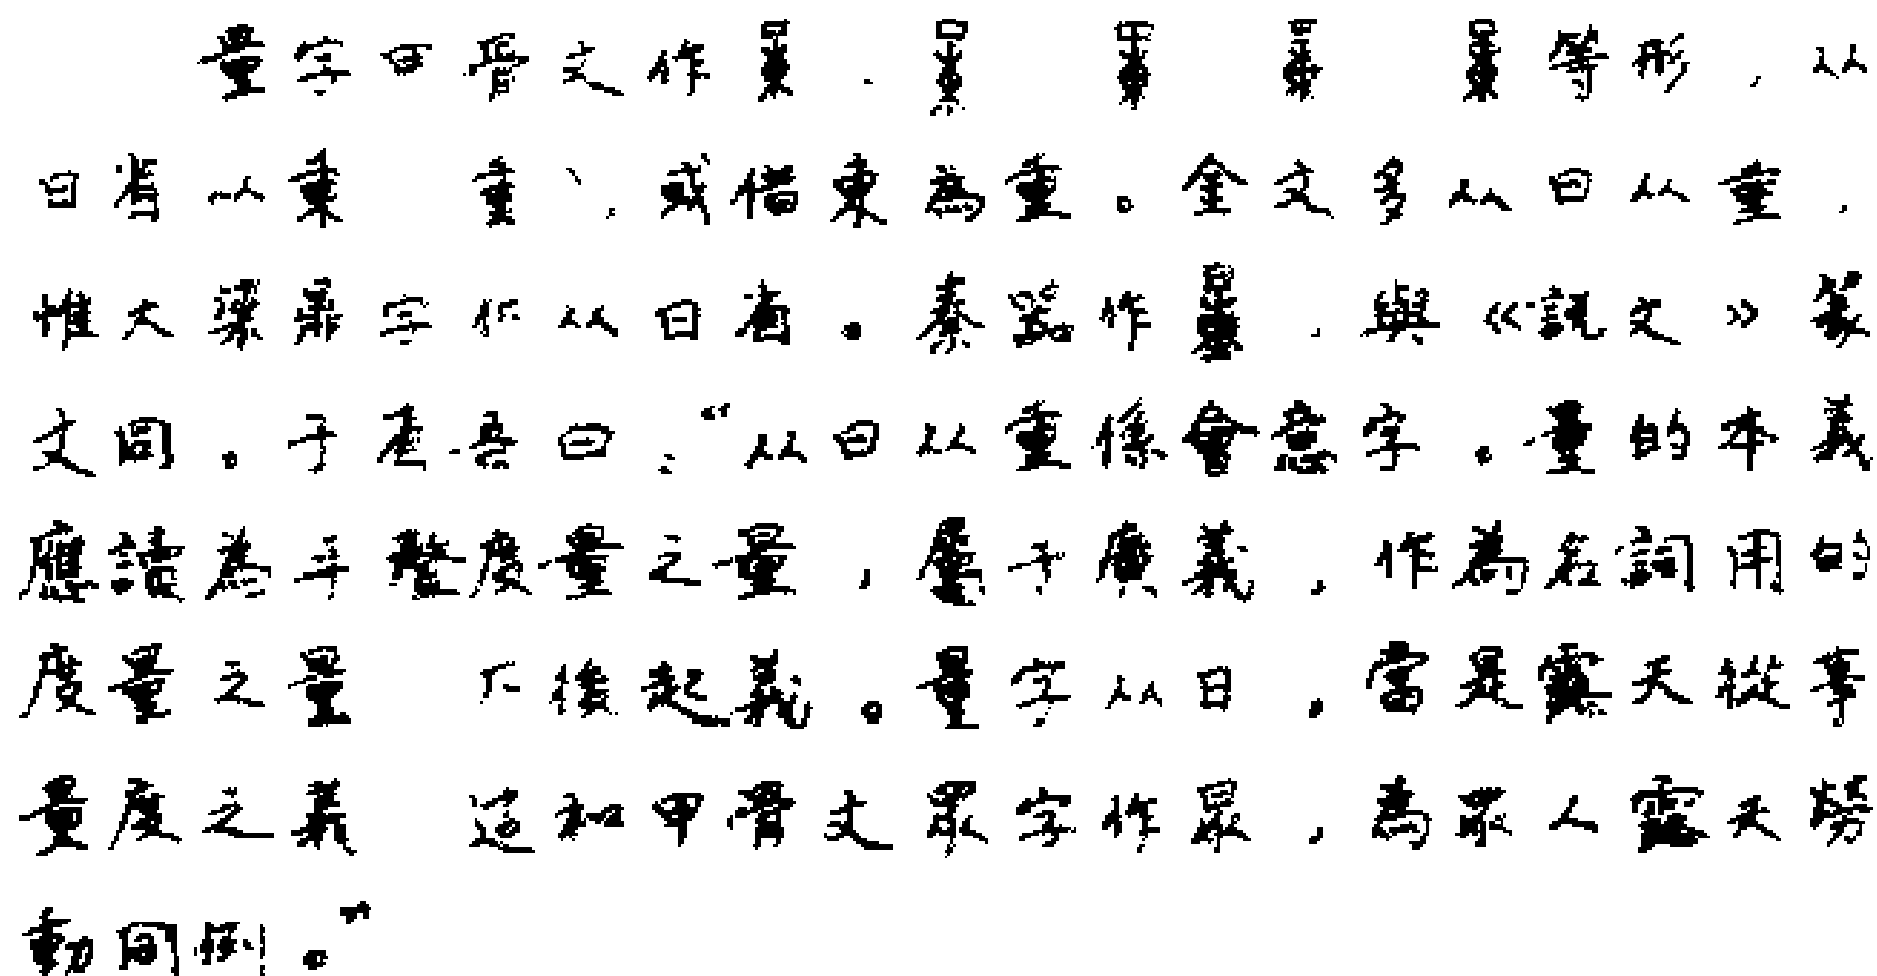 量字甲骨文作 、 等形，从
日省从東 重、或借東為重。金文多从日从重，
惟大梁鼎字作从日省。秦器作量，與《說文》篆
文同。于省吾曰：“从日从重係會意字。量的本義
應讀為平聲度量之量，屬于廣義，作為名詞用的
度量之量 後起義。量字从日，當是露天從事
量度之義 這和甲骨文眾字作眾，為眾人露天勞
動同例。”